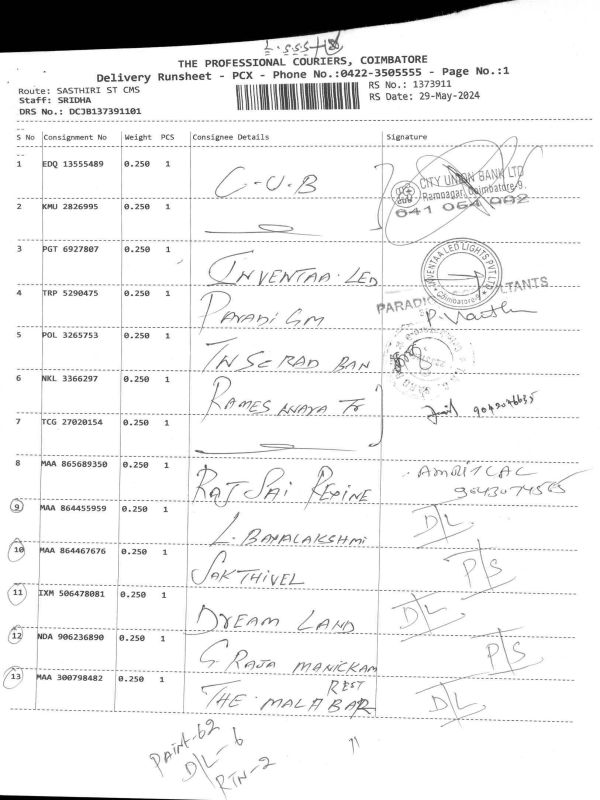 THE PROFESSIONAL COURIERS, COIMBATORE
Delivery Runsheet - PCX - Phone No.:0422-3505555 - Page No.:1
Route: SASTHIRI ST CMS
RS No.: 1373911
Staff: SRIDHA
RS Date: 29-May-2024
DRS No.: DCJB137391101
S No Consignment No Weight PCS Consignee Details Signature
1 EDQ 13555489 0.250 1 C-U-B CITY UNION BANK LTD
Ramnagar, Coimbatore-9.
641 064 002
2 KMU 2826995 0.250 1
3 PGT 6927807 0.250 1 INVENTAA. LED INVENTAA LED LIGHTS PVT LTD Coimbatore-9
4 TRP 5290475 0.250 1 PARADIGM
5 POL 3265753 0.250 1
6 NKL 3366297 0.250 1
7 TCG 27020154 0.250 1
8 MAA 865689350 0.250 1 RAJ SAI REXINE AMRITLAL
9 MAA 864455959 0.250 1 D/L
10 MAA 864467676 0.250 1 SAKTHIVEL P/S
11 IXM 506478081 0.250 1 DREAM LAND D/L
12 NDA 906236890 0.250 1 G RAJA MANICKAM P/S
13 MAA 300798482 0.250 1 THE MALABAR REST D/L
D/L-6
RTN-2